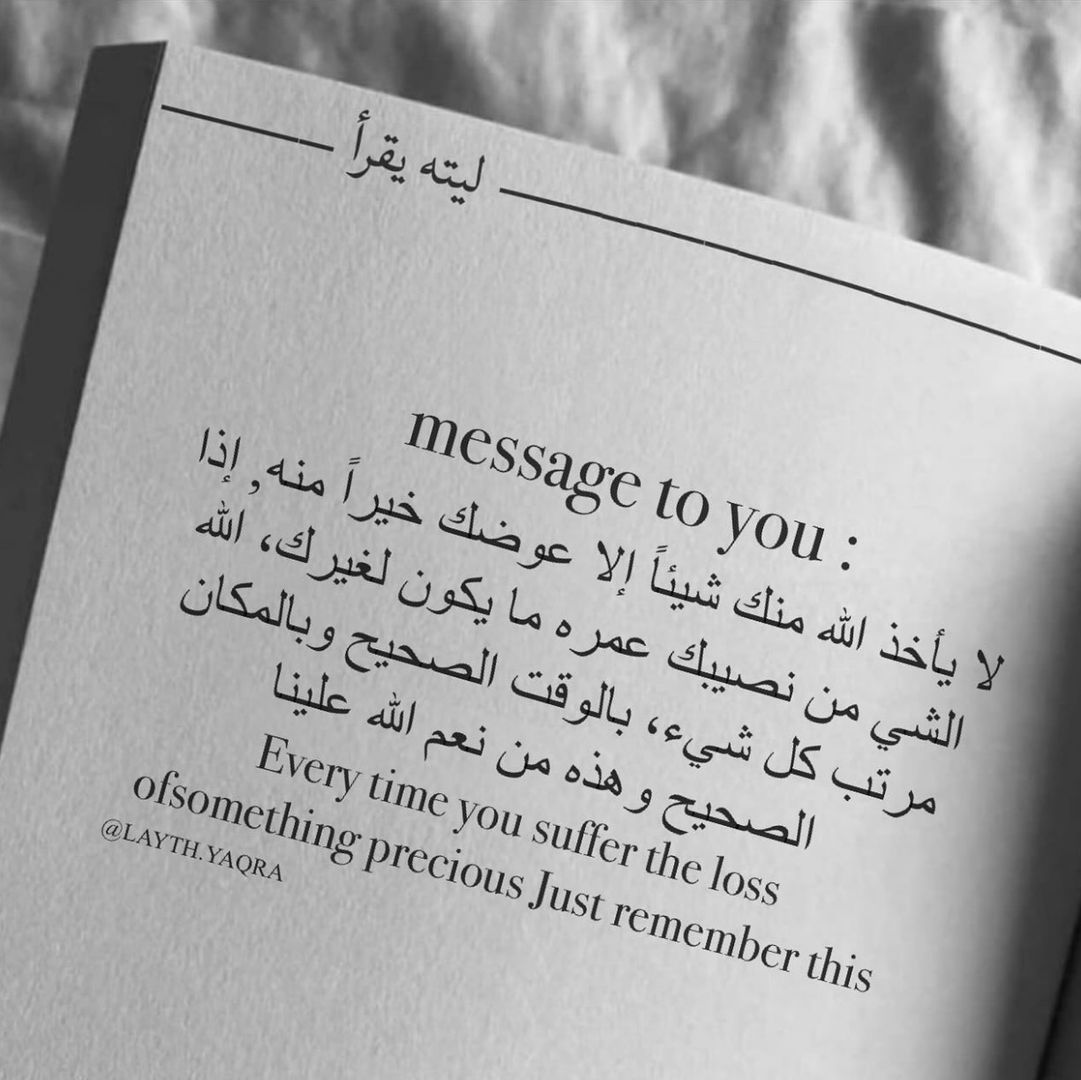 ليته يقرأ
message to you :
لا يأخذ الله منك شيئاً إلا عوضك خيراً منه, إذا
الشي من نصيبك عمره ما يكون لغيرك، الله
مرتب كل شيء، بالوقت الصحيح وبالمكان
الصحيح وهذه من نعم الله علينا
Every time you suffer the loss
ofsomething precious Just remember this
@LAYTH.YAQRA